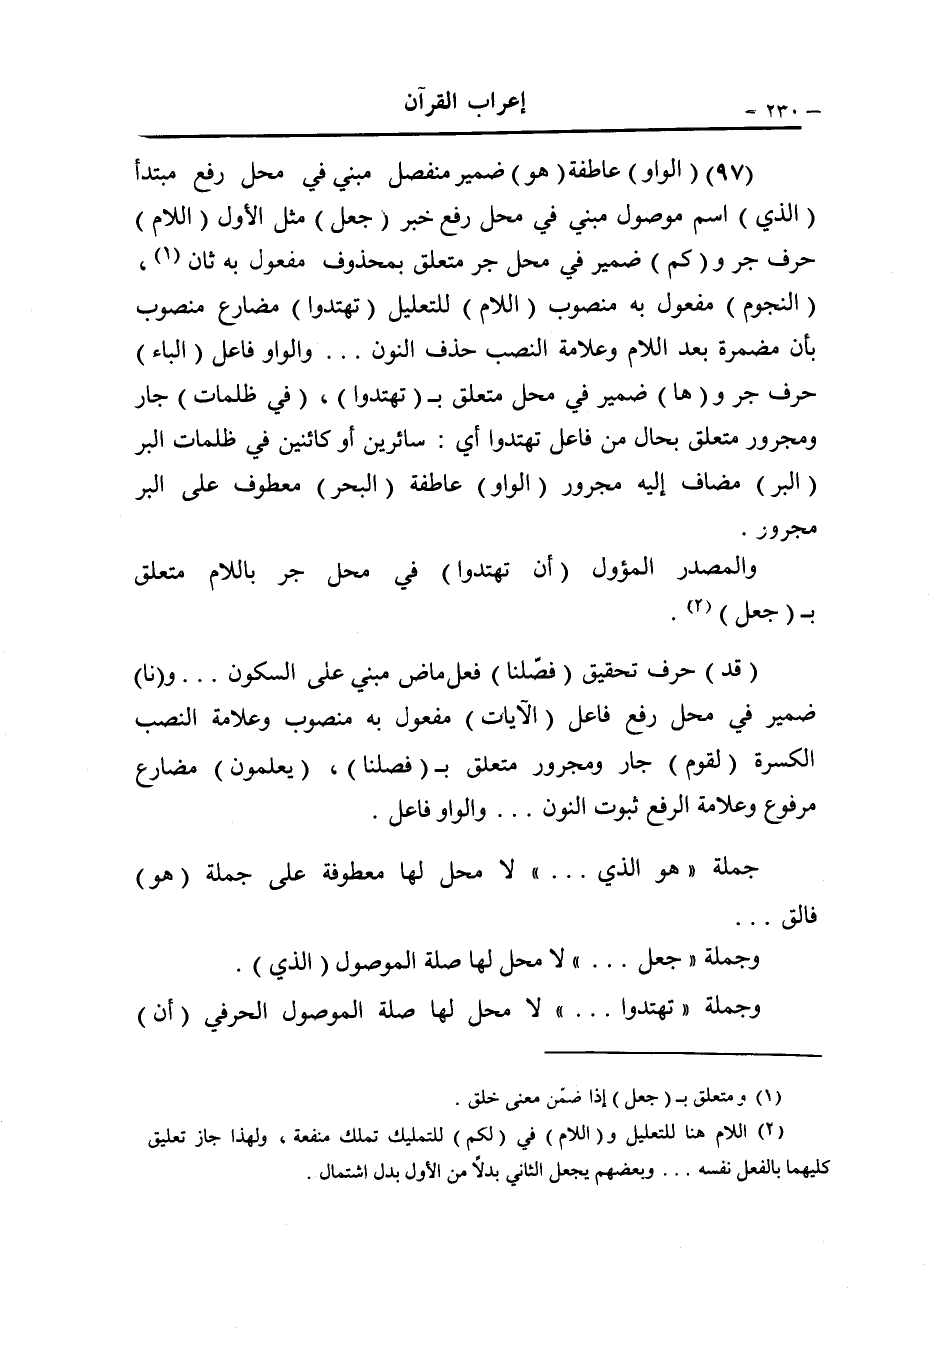 إعراب القرآن
– ٢٣٠ –
(٩٧) ( الواو ) عاطفة ( هو ) ضمير منفصل مبني في محل رفع مبتدأ
( الذي ) اسم موصول مبني في محل رفع خبر ( جعل ) مثل الأول ( اللام )
حرف جر و( كم ) ضمير في محل جر متعلق بمحذوف مفعول به ثان (١) ،
( النجوم ) مفعول به منصوب ( اللام ) للتعليل ( تهتدوا ) مضارع منصوب
بأن مضمرة بعد اللام وعلامة النصب حذف النون . . . والواو فاعل ( الباء )
حرف جر و( ها ) ضمير في محل متعلق بـ ( تهتدوا ) ، ( في ظلمات ) جار
ومجرور متعلق بحال من فاعل تهتدوا أي : سائرين أو كائنين في ظلمات البر
( البر ) مضاف إليه مجرور ( الواو ) عاطفة ( البحر ) معطوف على البر
مجرور .
والمصدر المؤول ( أن تهتدوا ) في محل جر باللام متعلق
بـ ( جعل ) (٢) .
( قد ) حرف تحقيق ( فصّلنا ) فعل ماض مبني على السكون . . . و(نا)
ضمير في محل رفع فاعل ( الآيات ) مفعول به منصوب وعلامة النصب
الكسرة ( لقوم ) جار ومجرور متعلق بـ ( فصلنا ) ، ( يعلمون ) مضارع
مرفوع وعلامة الرفع ثبوت النون . . . والواو فاعل .
جملة « هو الذي . . . » لا محل لها معطوفة على جملة ( هو )
فالق . . .
وجملة « جعل . . . » لا محل لها صلة الموصول ( الذي ) .
وجملة « تهتدوا . . . » لا محل لها صلة الموصول الحرفي ( أن )
(١) ومتعلق بـ ( جعل ) إذا ضمّن معنى خلق .
(٢) اللام هنا للتعليل و( اللام ) في ( لكم ) للتمليك تملك منفعة ، ولهذا جاز تعليق
كليهما بالفعل نفسه . . . وبعضهم يجعل الثاني بدلاً من الأول بدل اشتمال .